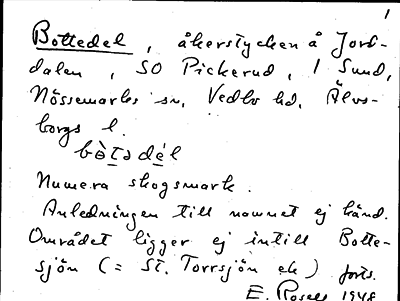 1
Bottedel, åkerstycken å Jord-
dalen, SO Pickerud, 1 Sund,
Nössemarks sn, Vedbo hd, Älvs-
borgs l.
bòtədél
Numera skogsmark.
Anledningen till namnet ej känd.
Området ligger ej intill Botte-
sjön (= St. Torrsjön ek) forts.
E. Rosell 1948